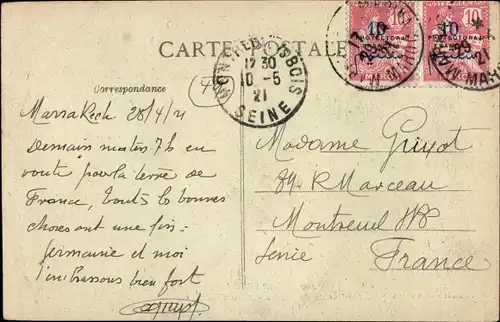 CARTE POSTALE
MONTREUIL-S-BOIS
17 30
10 -5
21
SEINE
10
PROTECTORAT
MAROC
10
PROTECTORAT
MAROC
Correspondance
Marrakech 28/4/21
Demain matin 7h en
route pour la terre de
France, toutes les bonnes
choses ont une fin.
Germaine et moi
t'embrassons bien fort
Madame Guyot
84 R Marceau
Montreuil s/B
Seine
France